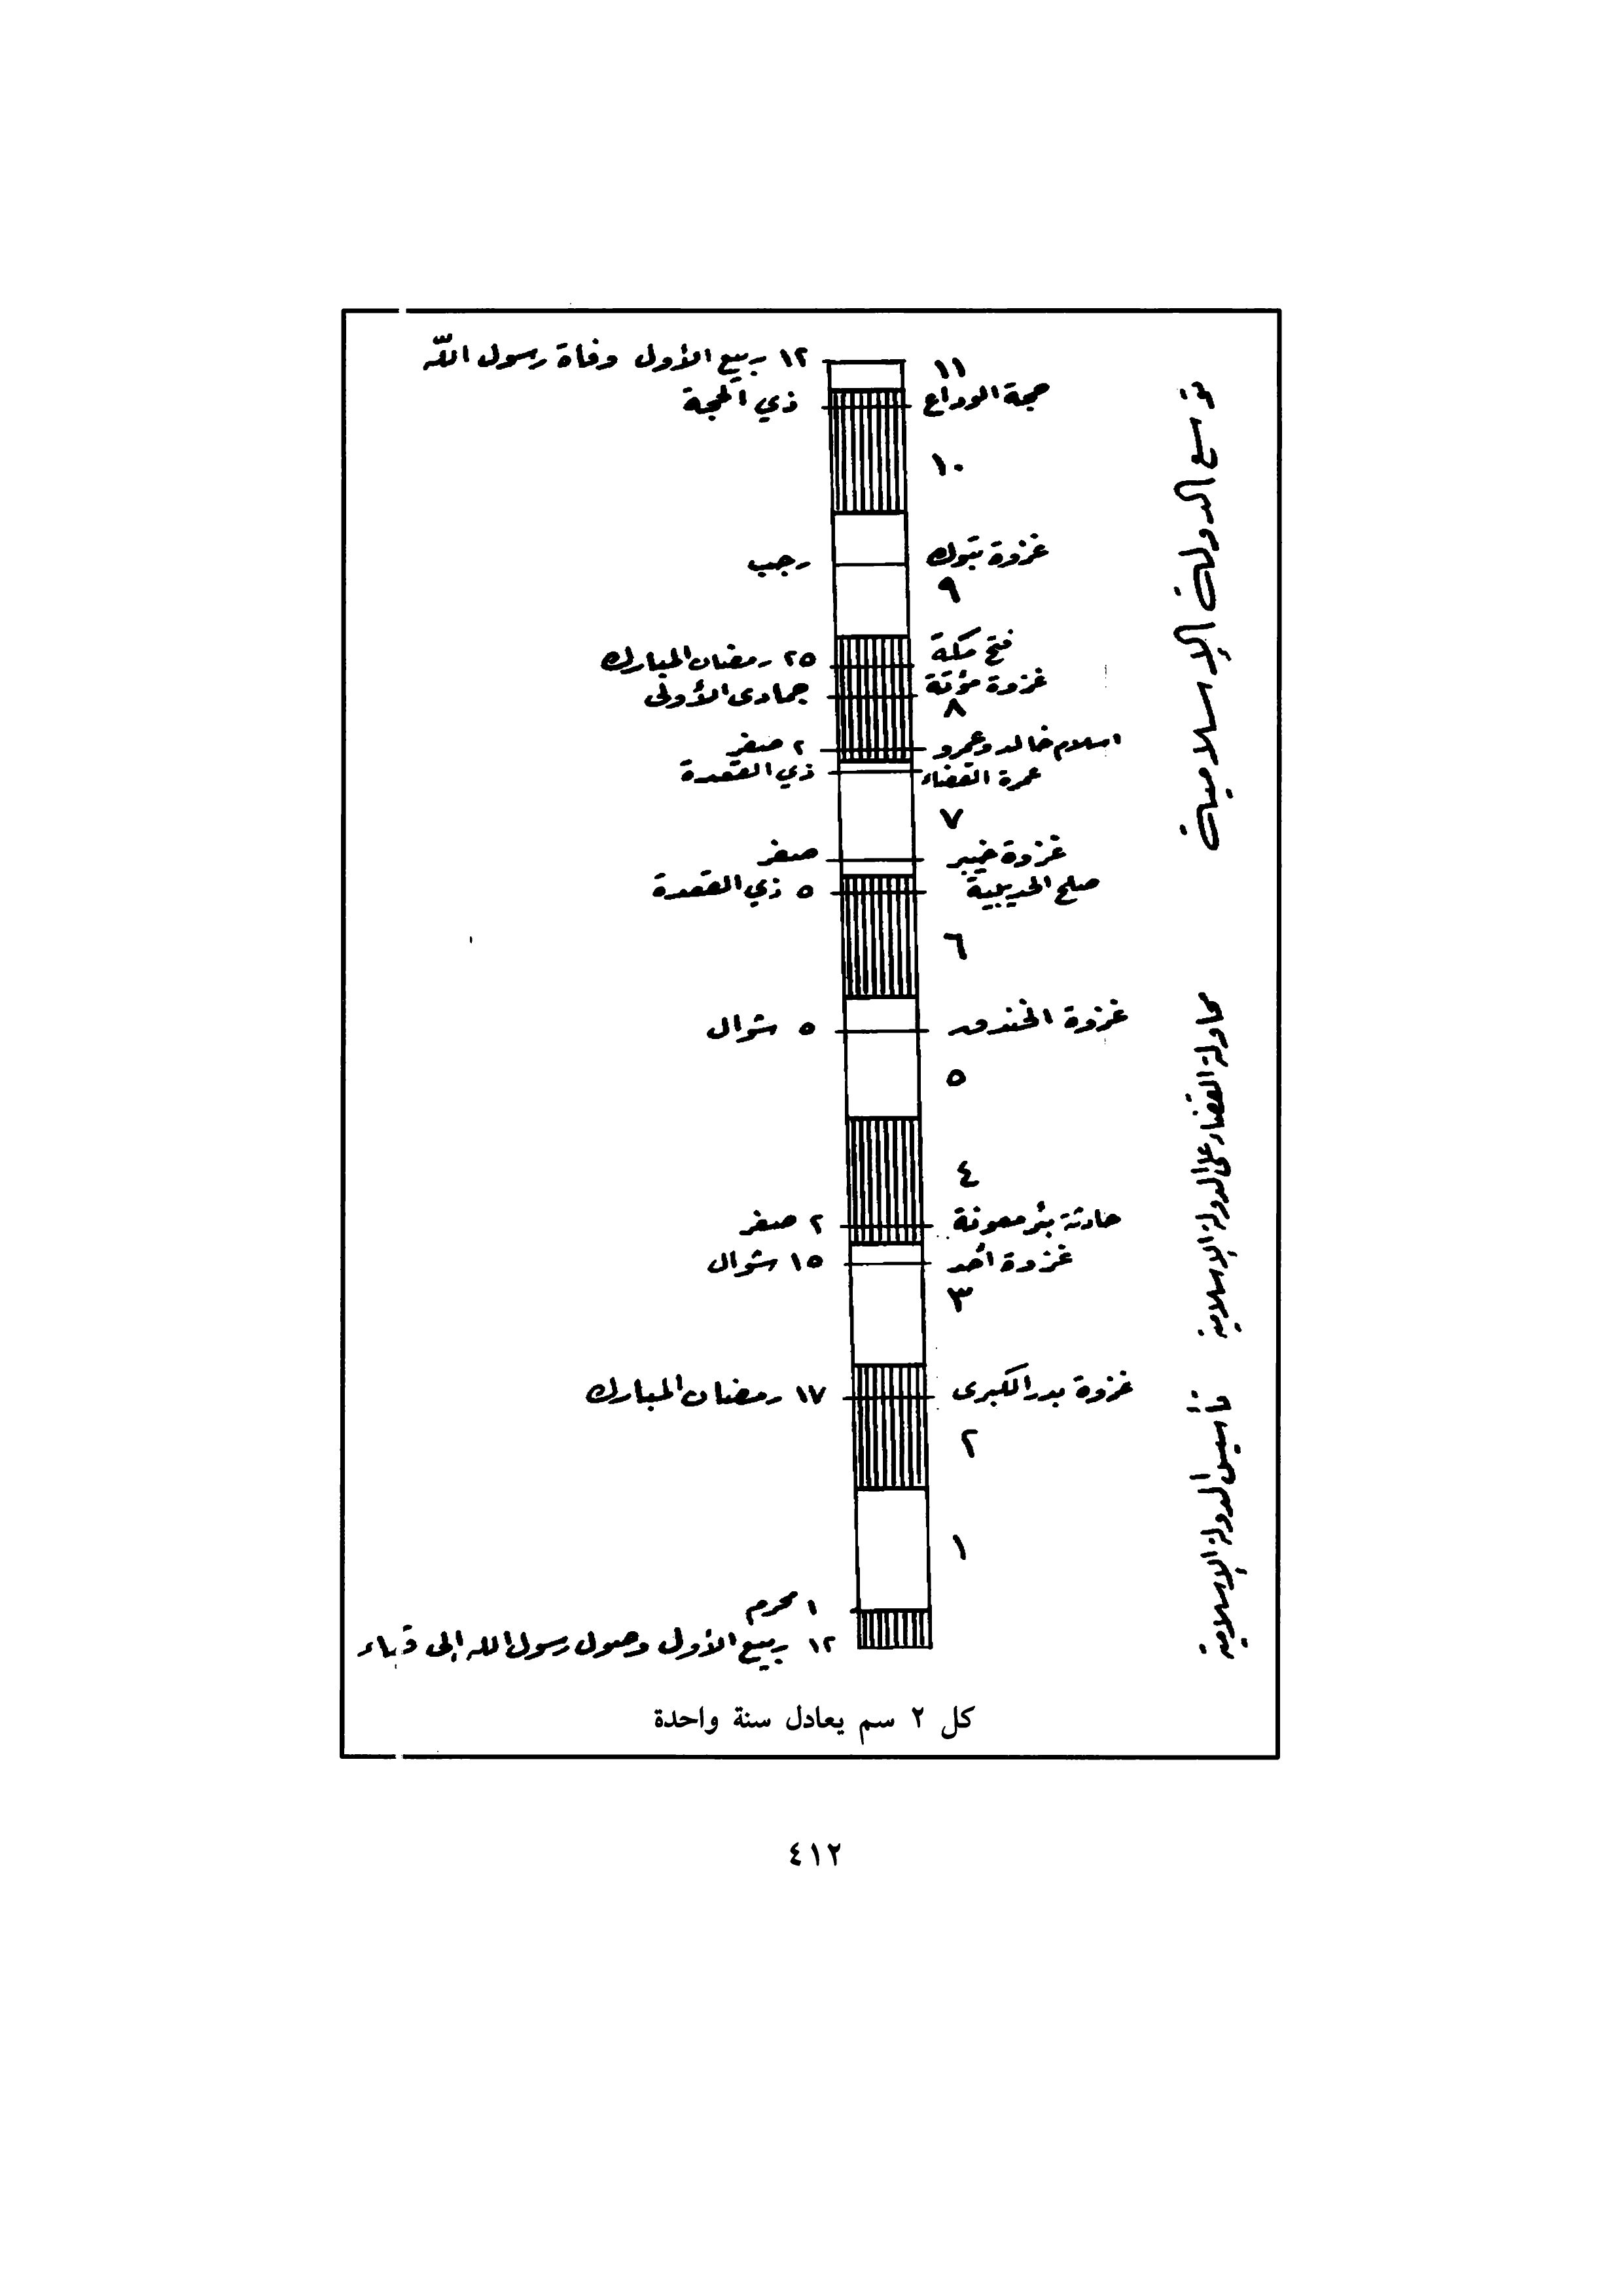 ١٢ ربيع الأول وفاة رسول الله
١١
حجة الوداع
ذي الحجة
١٠
غزوة تبوك
رجب
٩
فتح مكة
٢٥ رمضان المبارك
غزوة مؤتة
جمادى الأولى
٨
اسلام خالد وعمرو
٢ صفر
عمرة القضاء
ذي القعدة
٧
غزوة خيبر
صفر
صلح الحديبية
٥ ذي القعدة
٦
غزوة الخندق
٥ شوال
٥
٤
حادثة بئر معونة
٢ صفر
غزوة أحد
١٥ شوال
٣
غزوة بدر الكبرى
١٧ رمضان المبارك
٢
١
١ محرم
١٢ ربيع الأول وصول رسول الله إلى قباء
توسع الدولة الإسلامية
محاولة القضاء على الدولة الإسلامية
تأسيس الدولة الإسلامية
كل ٢ سم يعادل سنة واحدة
٤١٢